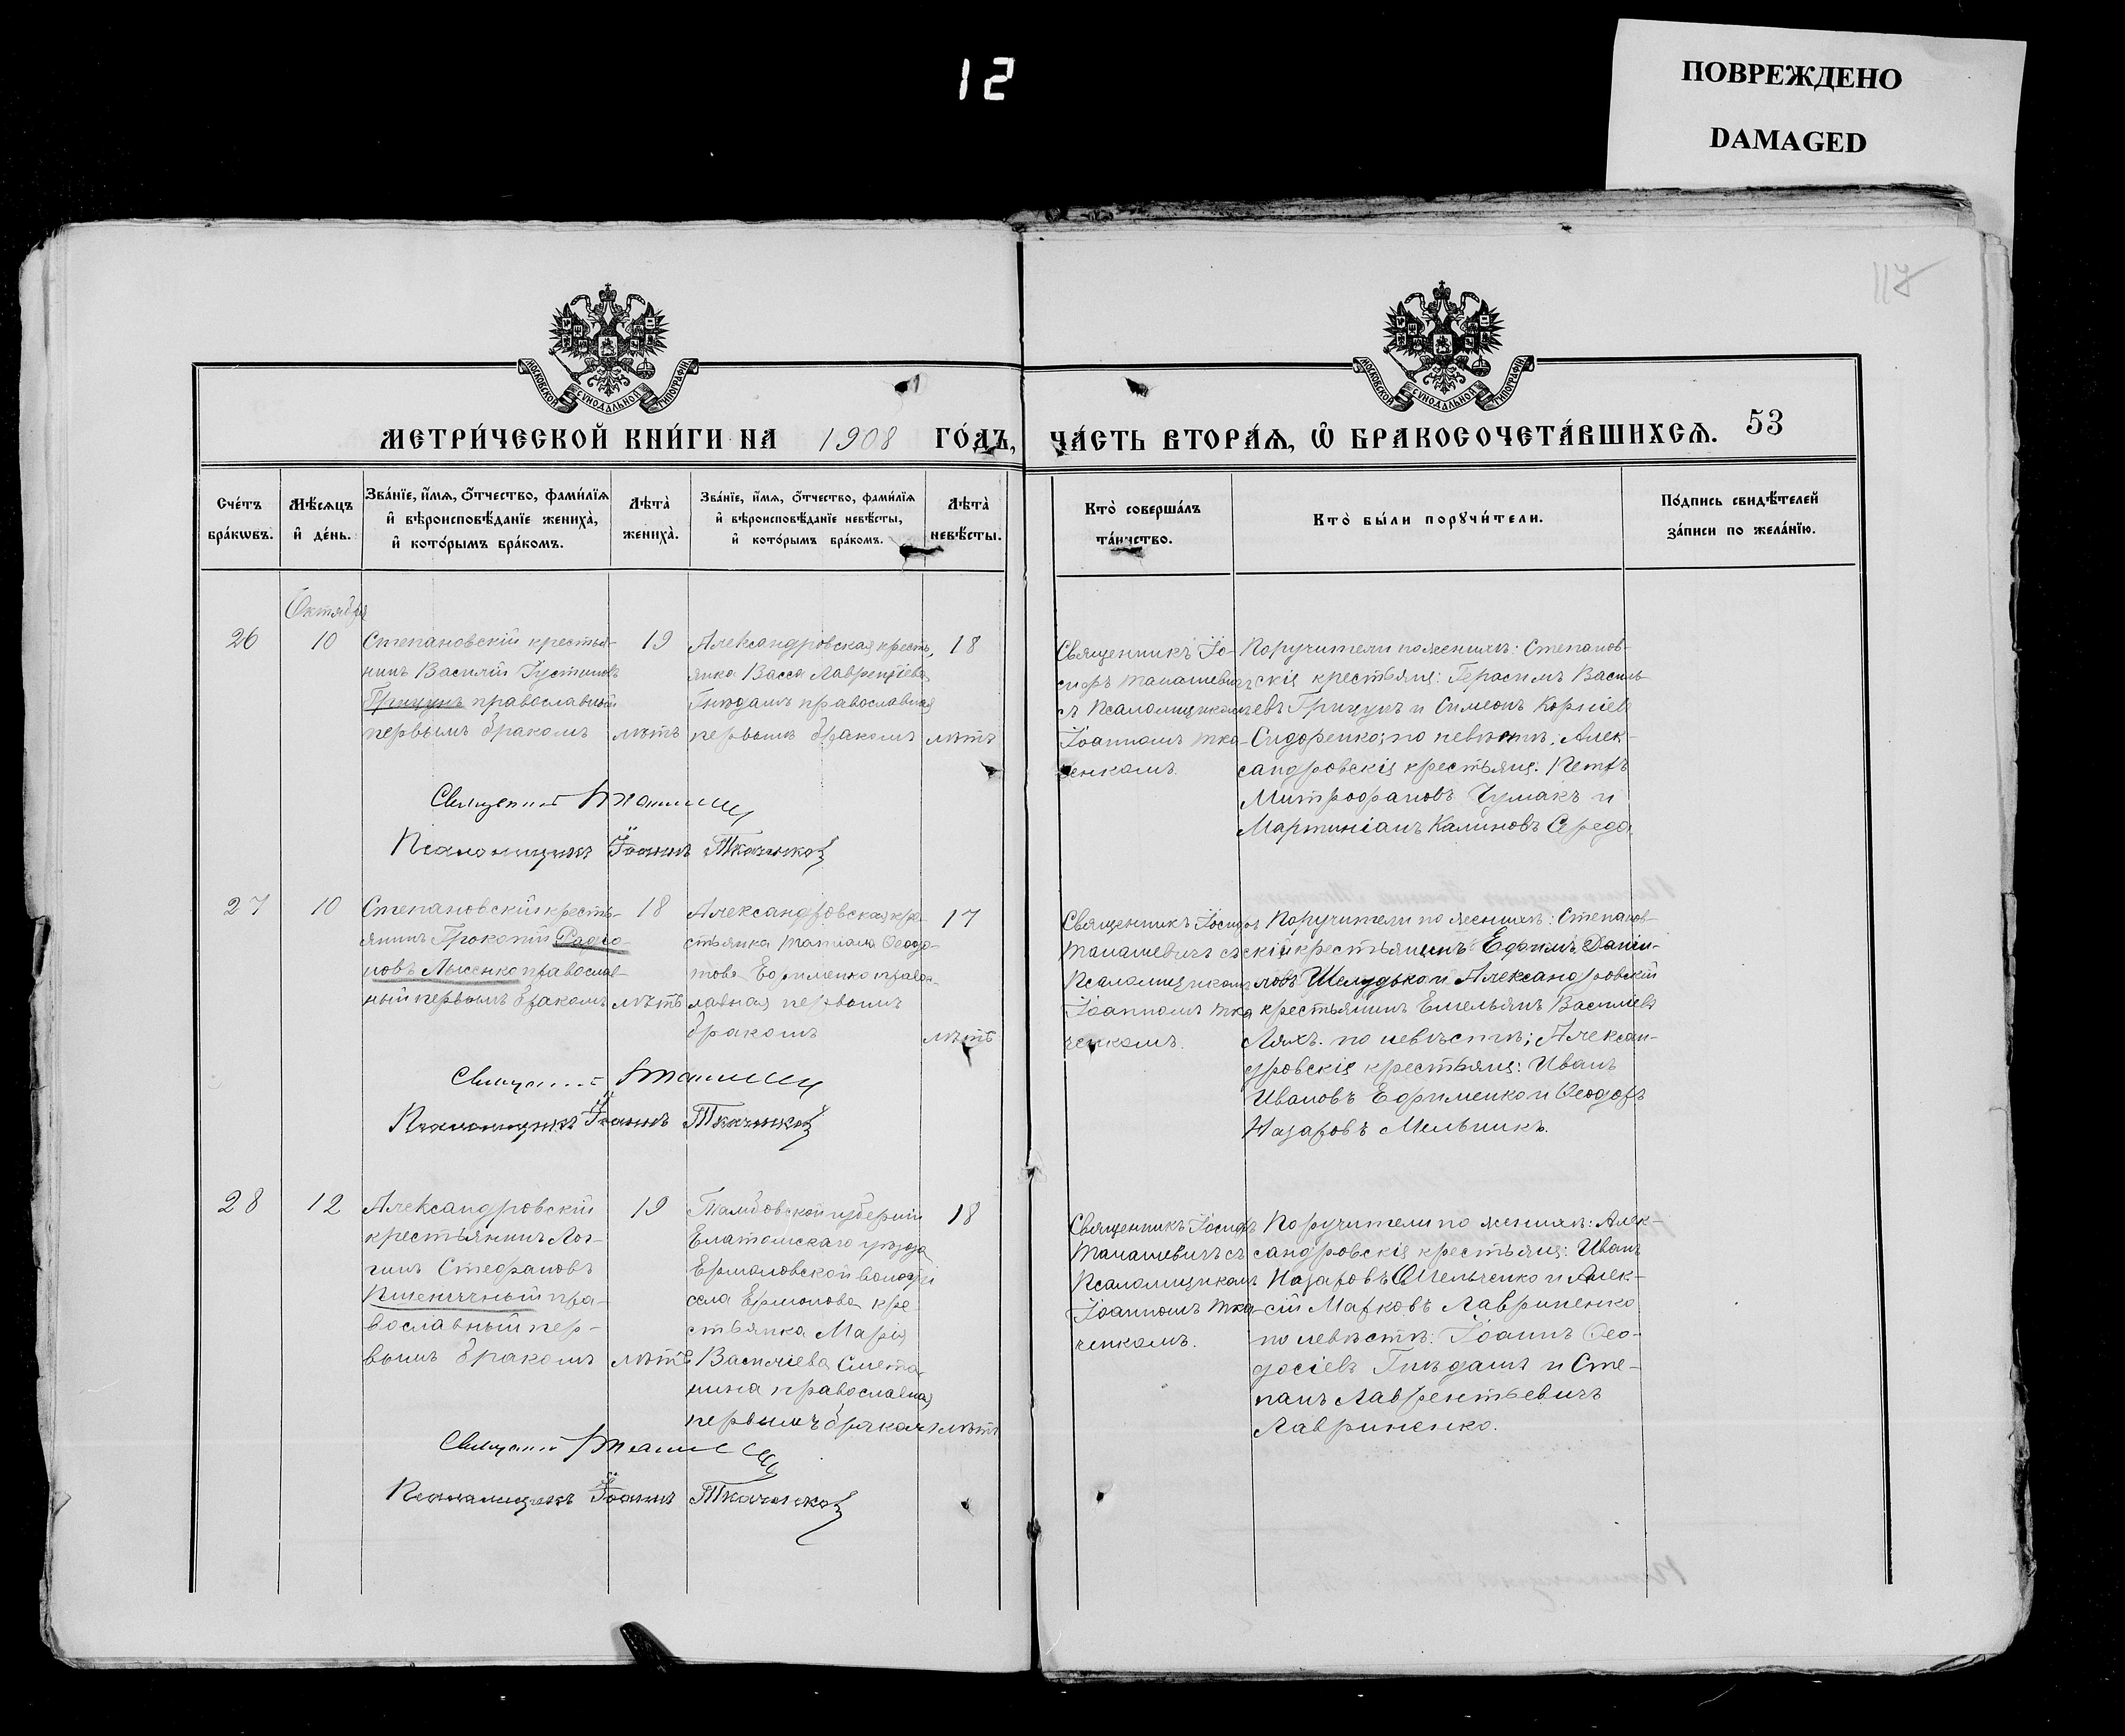 12
ПОВРЕЖДЕНО
DAMAGED
117
МОСКОВСКОЙ СУНОДАЛЬНОЙ ТИПОГРАФІИ
МОСКОВСКОЙ СУНОДАЛЬНОЙ ТИПОГРАФІИ
МЕТРИ́ЧЕСКОЙ КНИ́ГИ НА 1908 ГО́ДЪ,
ЧА́СТЬ ВТОРА́Ѧ, Ѽ БРАКОСОЧЕТА́ВШИХСѦ. 53
Сче́тъ бра́кѡвъ.
Мѣ́сѧцъ и҆ де́нь.
Зва́нїе, и҆́мѧ, ѻ҆́тчество, фами́лїѧ
и҆ вѣроисповѣ́данїе жениха̀,
и҆ кото́рымъ бра́комъ.
Лѣта̀ жениха̀.
Зва́нїе, и҆́мѧ, ѻ҆́тчество, фами́лїѧ
и҆ вѣроисповѣ́данїе невѣ́сты,
и҆ кото́рымъ бра́комъ.
Лѣта̀ невѣ́сты.
Кто̀ соверша́лъ
та́инство.
Кто̀ бы́ли порꙋчи́тели.
По́дпись свидѣ́телей
за́писи по жела́нїю.
Октября
26
10
Степановскій крестья-
нинъ Василій Іустиновъ
Грицунъ православный
первымъ бракомъ
19
лѣтъ
Александровская кресть-
янка Васса Лаврентіева
Гнѣдашъ православная
первымъ бракомъ
18
лѣтъ
Священникъ Іо-
сифъ Манашевичъ
съ Псаломщикомъ
Іоанномъ Тка-
ченкомъ.
Поручители по женихѣ: Степанов-
скія крестьяне: Герасимъ Василь-
евъ Грицунъ и Симеонъ Корніевъ
Сидоренко; по невѣстѣ: Алек-
сандровскія крестьяне: Петръ
Митрофановъ Чумакъ и
Мартиніанъ Калиновъ Середа
Священникъ
Псаломщикъ Іоаннъ Ткаченко
27
10
Степановскій кресть-
янинъ Прокопій Радіо-
новъ Лысенко православ-
ный первымъ бракомъ
18
лѣтъ
Александровская кре-
стьянка Татіана Ѳеодо-
това Ефименко право-
славная первымъ
бракомъ
17
лѣтъ
Священникъ Іосифъ
Манашевичъ съ
Псаломщикомъ
Іоанномъ Тка
ченкомъ.
Поручители по женихѣ: Степанов-
скій крестьянинъ: Ефимъ Даніи-
ловъ Шелудько и Александровскій
крестьянинъ Емельянъ Васильевъ
Ляхъ. по невѣстѣ; Алексан-
дровскія крестьяне: Иванъ
Ивановъ Ефименко и Ѳеодоръ
Назаровъ Мельникъ.
Священникъ
Псаломщикъ Іоаннъ Ткаченко
28
12
Александровскій
крестьянинъ Лог-
гинъ Стефановъ
Пшеничный пра-
вославный пер-
вымъ бракомъ
19
лѣтъ
Тамбовской губерніи
Елатомскаго уѣзда
Ермоловской волости
села Ермолова кре
стьянка Марія
Василіева Смета-
нина православная
первымъ бракомъ
18
лѣтъ
Священникъ Іосифъ
Манашевичъ съ
Псаломщикомъ
Іоанномъ Тка-
ченкомъ.
Поручители по женихѣ: Алек-
сандровскія крестьяне: Иванъ
Назаровъ Омельченко и Алек-
сій Марковъ Лавриненко
по невѣстѣ: Іоаннъ Ѳео-
досіевъ Гнѣдашъ и Сте-
панъ Лаврентьевичъ
Лавриненко.
Священникъ
Псаломщикъ Іоаннъ Ткаченко